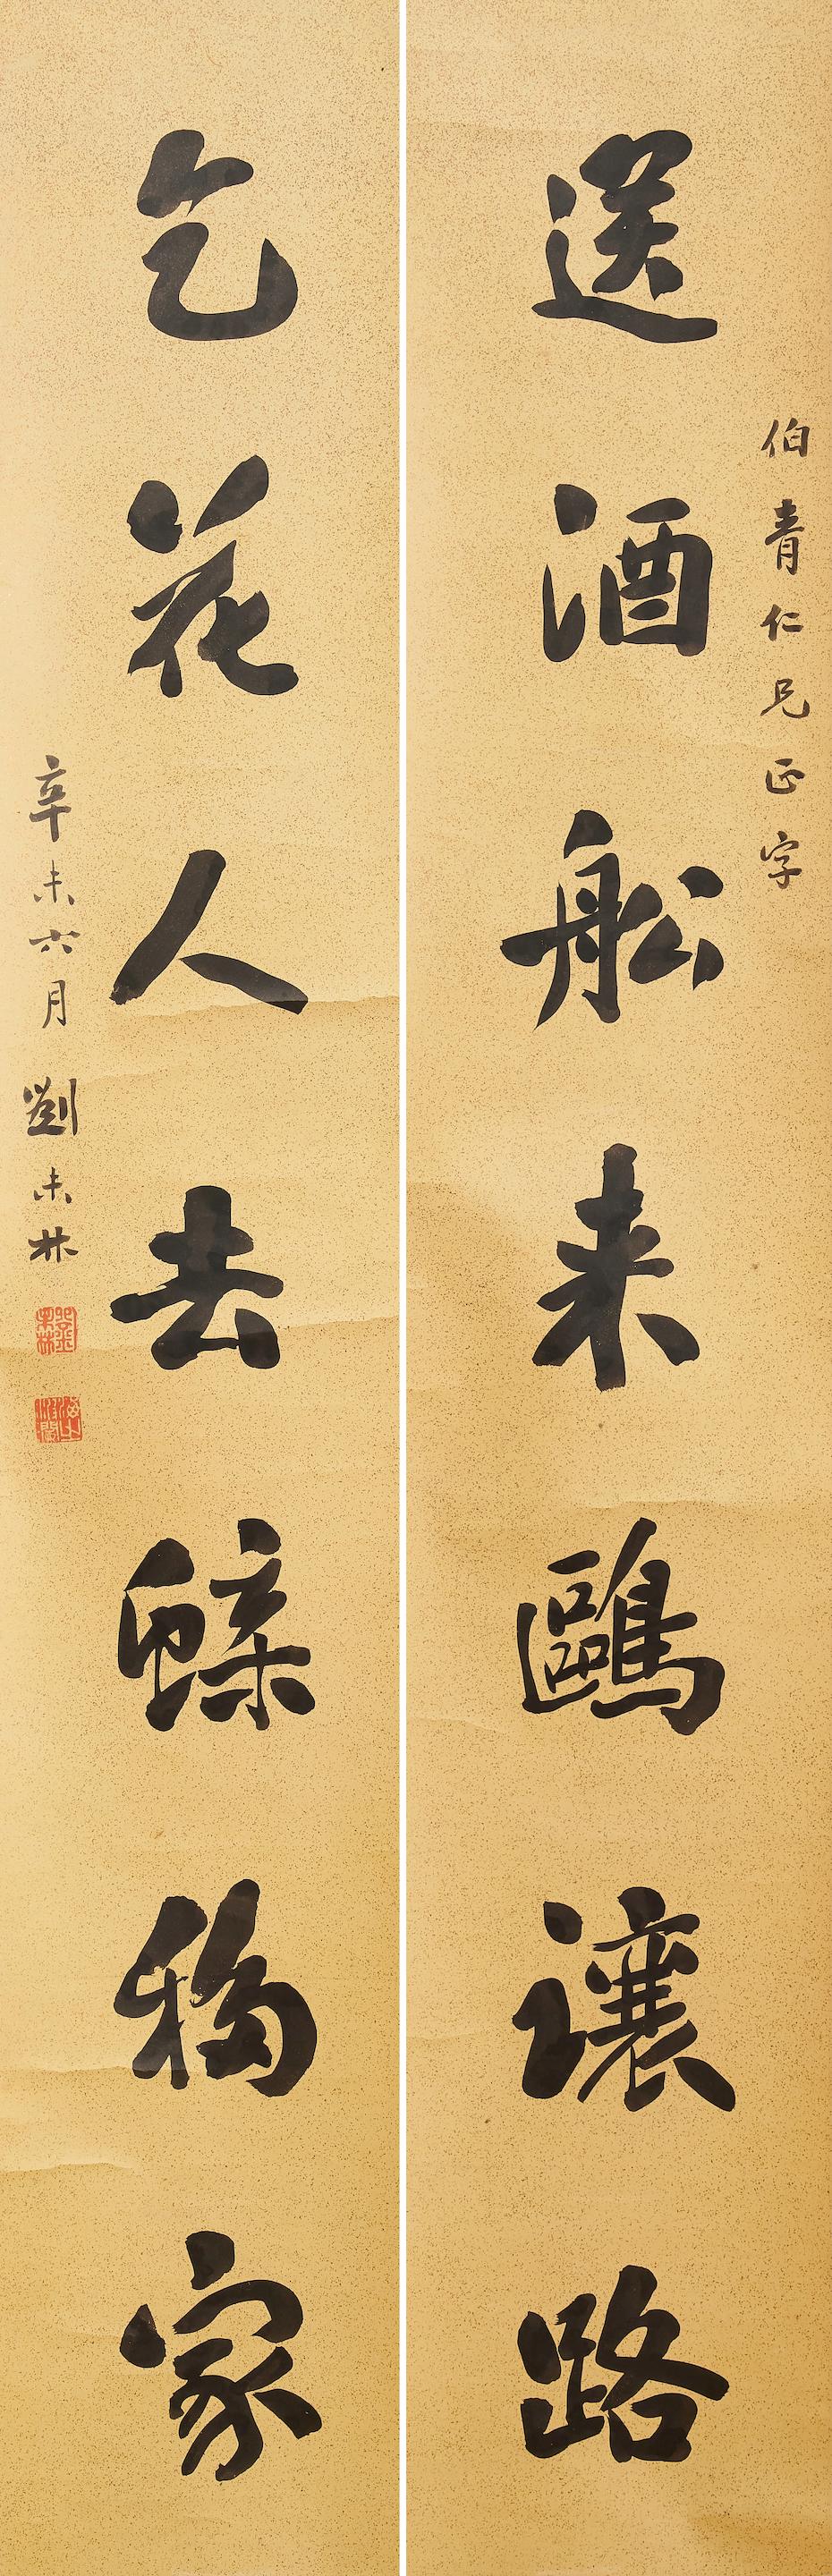 伯青仁兄正字
送酒舩来鷗讓路
乞花人去蝶移家
辛未六月劉未林